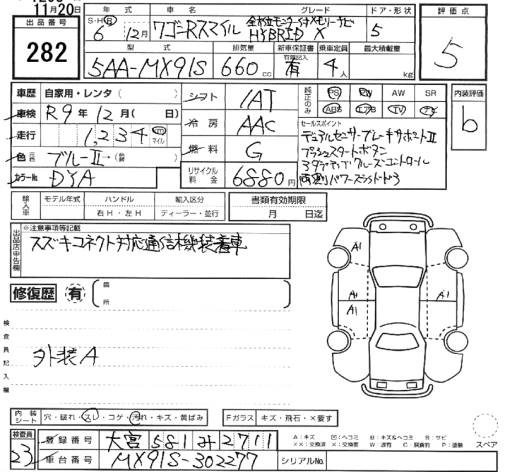 11月20日
出品番号
282
年式 車名 グレード ドア・形状 評価点
S・H・R 6 12月 ワゴンRスマイル 全方位モニター付メモリーナビ HYBRID X 5 5
型式 排気量 新車保証書 乗車定員 最大積載量
5AA-MX91S 660cc 記録簿入 有 4人 kg
車歴 自家用・レンタ( )
シフト IAT
純正のみ PS PW AW SR
ABS エアB TV ナビ
内装評価 b
車検 R9年12月( 日)
冷房 AAC
走行 1,234 km マイル
セールスポイント
デュアルセンサーブレーキサポートII
プッシュスタートボタン
アダプティブクルーズコントロール
両側パワースライドドア
色 元色 ブルーII→(替色 )
燃料 G
カラーNo. DYA
リサイクル料金 6880円
輸入車 モデル年式 ハンドル 輸入区分 書類有効期限
年 右H・左H ディーラー・並行 月 日迄
出品店申告欄
※注意事項等記載
スズキコネクト対応通信機装着車
修復歴 有 箇所
A1
A1 A1 A1
検査員記入欄
外装A
内装シート 穴・破れ・スレ・コゲ・汚れ・キズ・黄ばみ Fガラス キズ・飛石・×要す
A:キズ U:ヘコミ B:キズ&ヘコミ S:サビ
XX:交換済 X:交換 W:波有 C:腐食有 P:塗装 スペア
検査員 23
登録番号 大宮 581 み 2711
車台番号 MX91S-302277 シリアルNo.